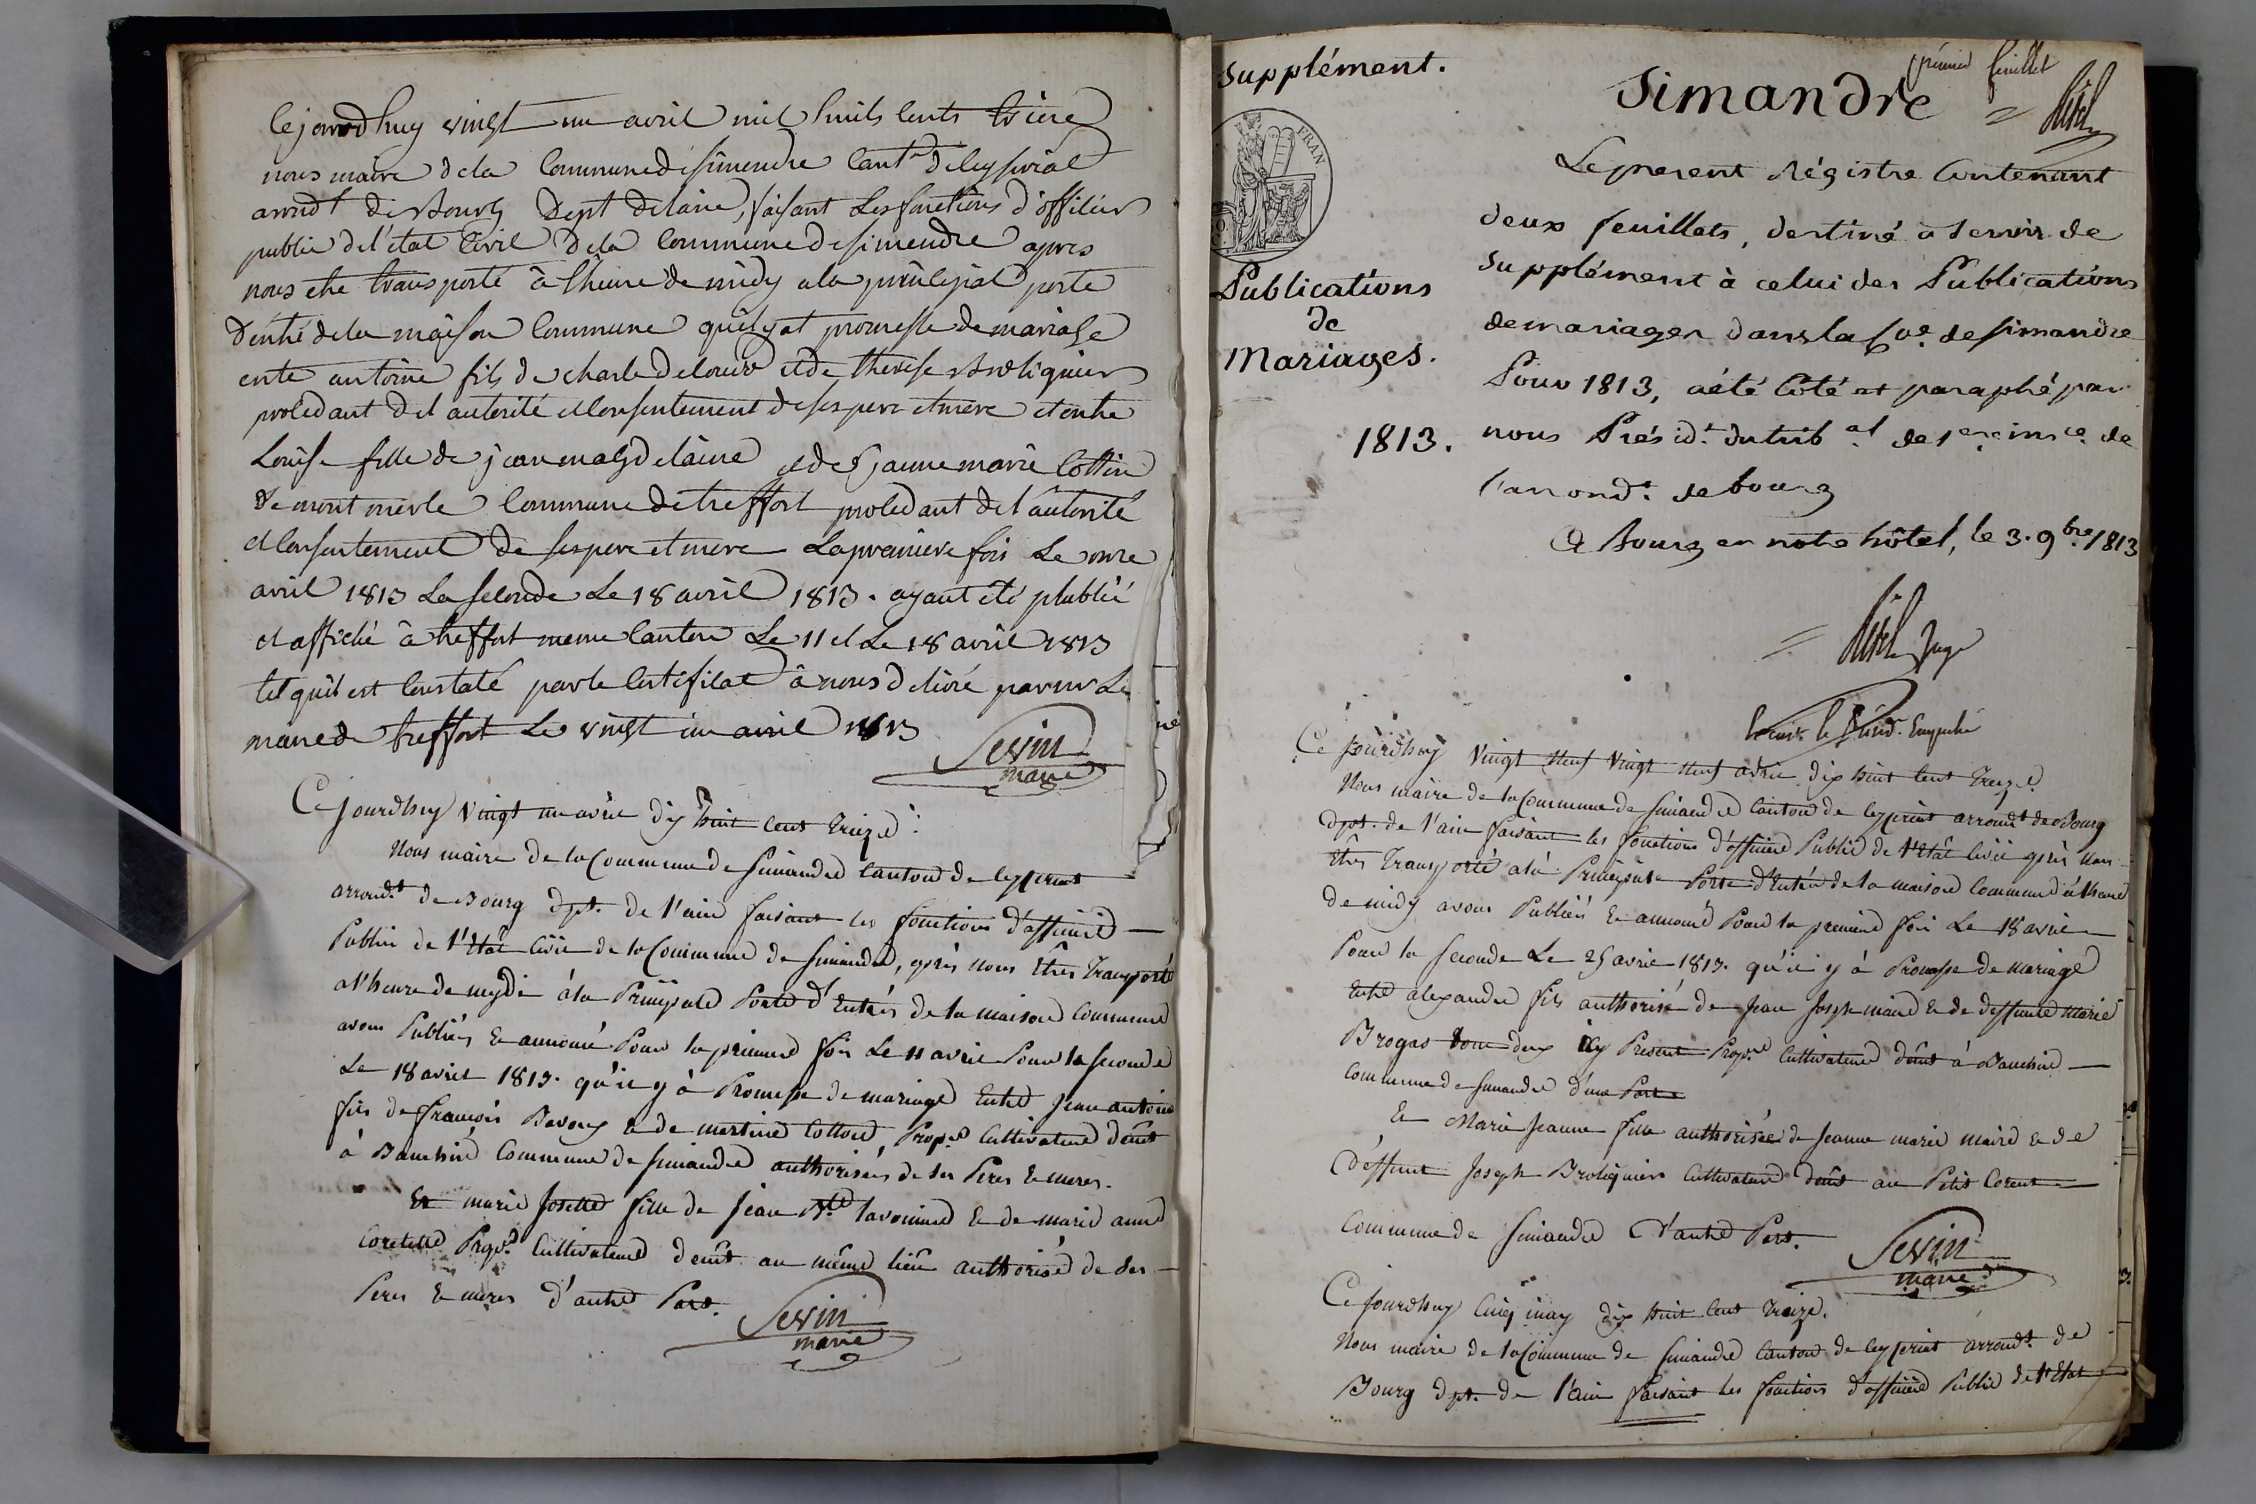 Cejourdhuy vingt un avril mil huits cents treize
nous maire dela Commune de simendre cant.n de leyseriat
arrond.t de Bourg Dept delain, faisant les fonctions d'officier
public de l'etat Civil dela Commune de simendre apres
nous etre transporté à l'heure de midy ala principial porte
d'entré dela maison Commune quil y at promesse de mariage
entre antoine fils de charle delouve et de therese Broliquier
procedant del autorité et Consentement de ses pere et mere et entre
Louise fille de jean magdelaine et de jeanne marie Cottin
de mont merle Commune de treffort procedant de l'autorité
et Consentement de ses pere et mere La premiere fois Le onze
avril 1813 La seconde Le 18 avril 1813. ayant été plublié
et affiché à treffort meme Canton Le 11 et Le 18 avril 1813
tel quil est Constaté par le Certificat à nous delivré par mr Le
maire de treffort Le vingt un avril 1813
Sevin
maire
Ce jourdhuy vingt un avril dix huit cent Treize.
Nous maire de la Commune de Simandre Canton de Ceyzeriat
arrond.t de Bourg dpt. de l'ain faisant les fonctions d'officier
Public de l'Etat Civil de la Commune de Simandre, après nous Etres Transporté
a l'heure de mydi à la Principale Porte d'Entrés de la maison Commune
avons Publiés & annoncé Pour la premiere fois Le 11 avril Pour la seconde
Le 18 avril 1813. qu'il y à Promesse de mariage Entre Jean antoine
fils de françois Bavoux & de martine Cotton, Prop.re Cultivateur demt
à Banchin Commune de Simandre authorisés de ses Peres & meres.
Et marie Josette fille de Jean B.te Savoinne & de marie anne
Coretette Prop.re Cultivateur demt au même lieu authorisé de ses
Peres & meres d'autre Part.
Sevin
maire
supplément.
FRAN
Publications
de
Mariages.
1813.
prémier feuillet
Simandre
Le present Régistre Contenant
deux feuillets, destiné à servir de
supplément à celui des Publications
de mariages dans la Co.e de simandre
Pour 1813, a été côté et paraphé par
nous Présid.t du trib.al de 1ere ins.ce de
l'arrond.t de bourg
A Bourg en notre hôtel, le 3. 9bre 1813
Juge
le Présid.t Empeché
Ce jourdhuy vingt neuf vingt neuf avril dix huit cent Treize.
Nous maire de la Commune de Simandre Canton de Ceyzeriat arrond.t de Bourg
dpt. de l'ain faisant les fonctions d'officier Public de l'Etat Civil après nous
Etres Transporté à la Principale Porte d'Entrée de la maison Commune à l'heure
de midy avons Publiés & annoncé Pour la premiere fois Le 18 avril
Pour la seconde Le 25 avril 1813. qu'il y à Promesse de mariage
Entre alexandre fils authorisé de Jean Joseph maire & de deffunte Marie
Brogas tous deux icy Present Prop.re Cultivateur demt à Banchin
Commune de Simandre d'une Part
& Marie Jeanne fille authorisée de Jeanne marie maire & de
deffunt Joseph Broliquier Cultivateur demt au Petit Corent
Commune de Simandre D'autre Part.
Sevin
maire
Ce jourdhuy Cinq may dix huit cent Treize.
Nous maire de la Commune de Simandre Canton de Ceyzeriat arrond.t de
Bourg dpt. de l'ain faisant les fonctions d'officier Public de l'Etat